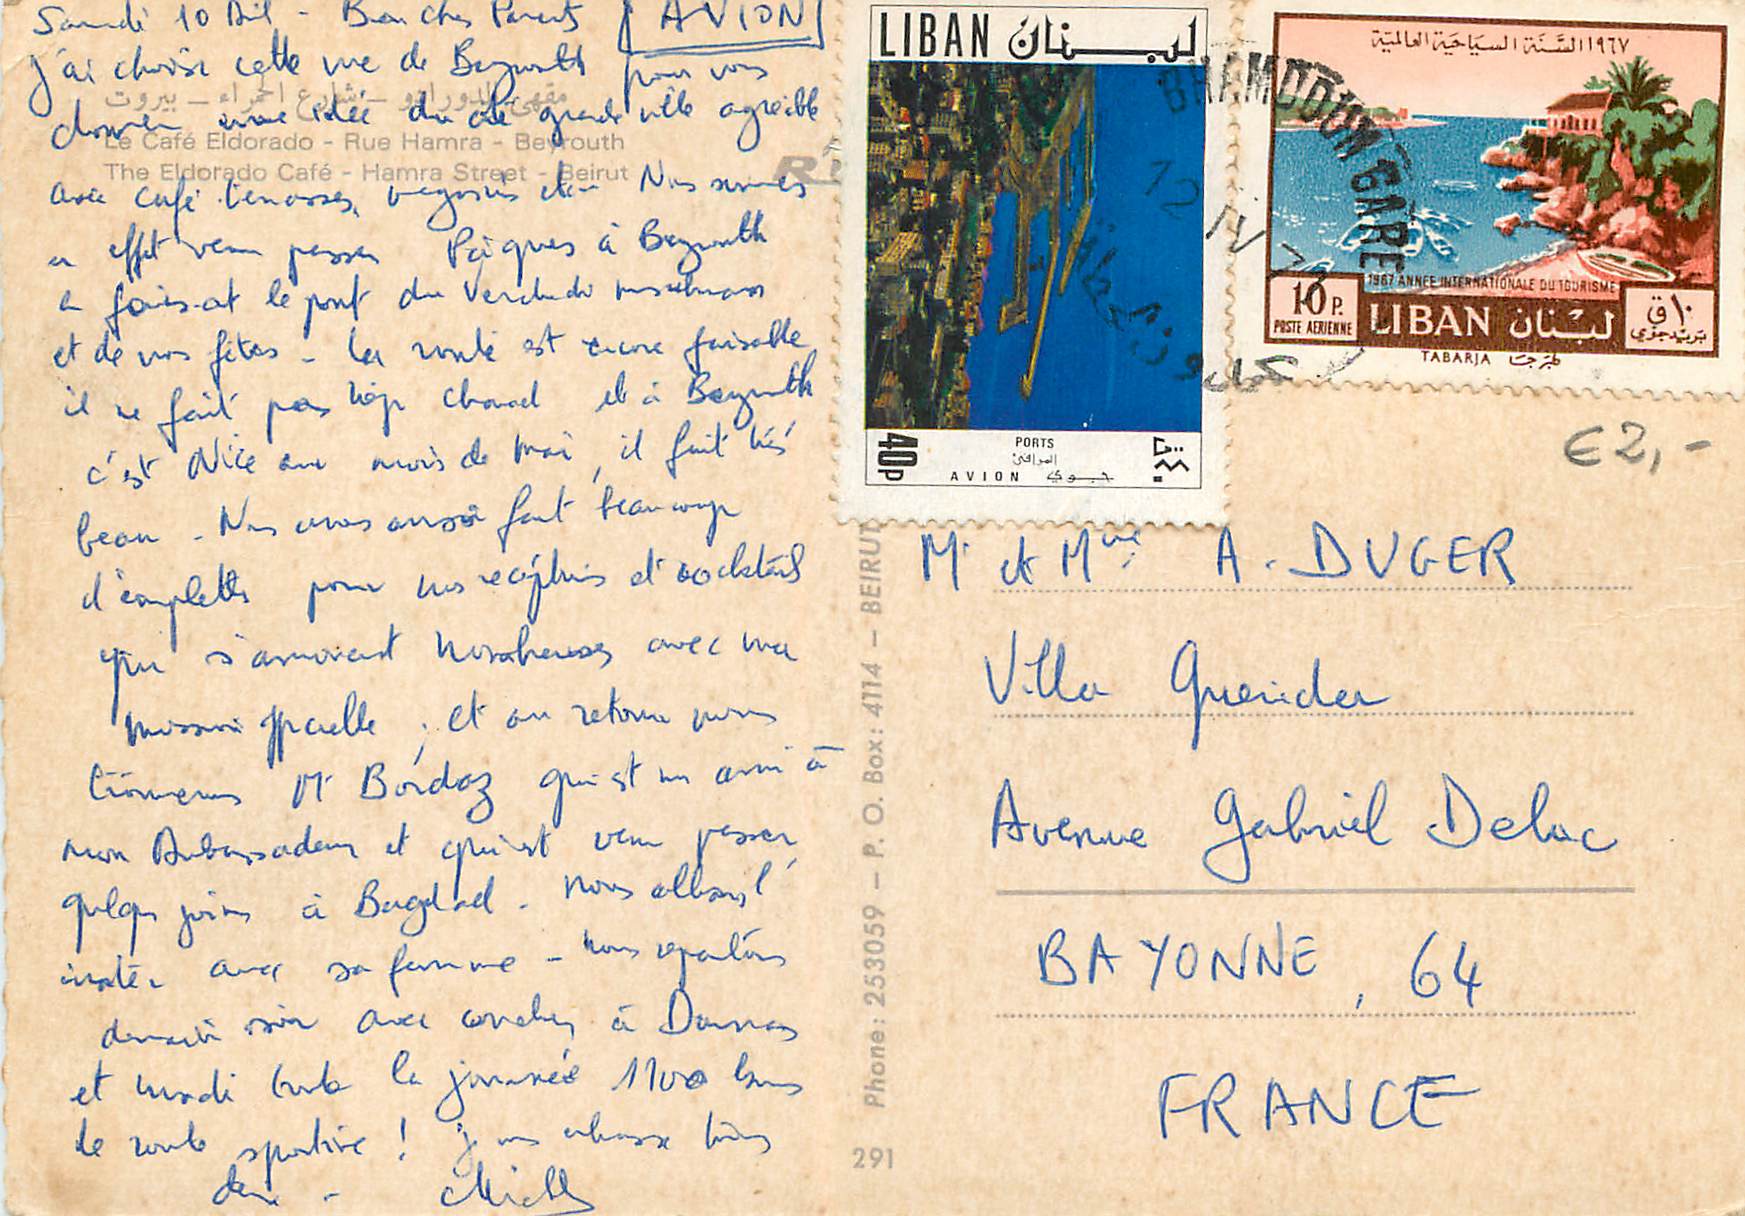 Samedi 10 Avril - Bien chers Parents
AVION
j'ai choisi cette vue de Beyrouth pour vous
donner une idée de cette grande ville agréable
avec café terrasses, magasins etc. Nous sommes
en effet venu passer Pâques à Beyrouth
en faisant le pont du Vendredi musulman
et de nos fêtes - La route est encore faisable
il ne fait pas trop chaud et à Beyrouth
c'est Nice au mois de mai, il fait très
beau - Nous avons aussi fait beaucoup
d'emplettes pour nos réceptions et cocktails
qui s'annoncent nombreuses avec ma
mission officielle ; et au retour nous
trouverons Mr Bordaz qui est un ami à
mon Ambassadeur et qui est venu passer
quelques jours à Bagdad - nous allons l'
inviter avec sa femme - nous repartons
demain soir avec coucher à Damas
et mardi toute la journée 1100 kms
de route sportive ! je vous embrasse tous
deux - Michel
مقهى الدورادو - شارع الحمراء - بيروت
Le Café Eldorado - Rue Hamra - Beyrouth
The Eldorado Café - Hamra Street - Beirut
Phone: 253059 - P. O. Box: 4114 - BEIRUT
291
LIBAN لبنان
40p
PORTS
المرافئ
AVION جوي
١٩٦٧ السنة السياحية العالمية
1967 ANNEE INTERNATIONALE DU TOURISME
10 P.
POSTE AERIENNE
LIBAN لبنان
١٠ ق
بريد جوي
TABARJA طبرجا
BHAMDOUN GARE
12 IV
€2,-
Mr et Mme A. DUGER
Villa Querida
Avenue Gabriel Deluc
BAYONNE, 64
FRANCE